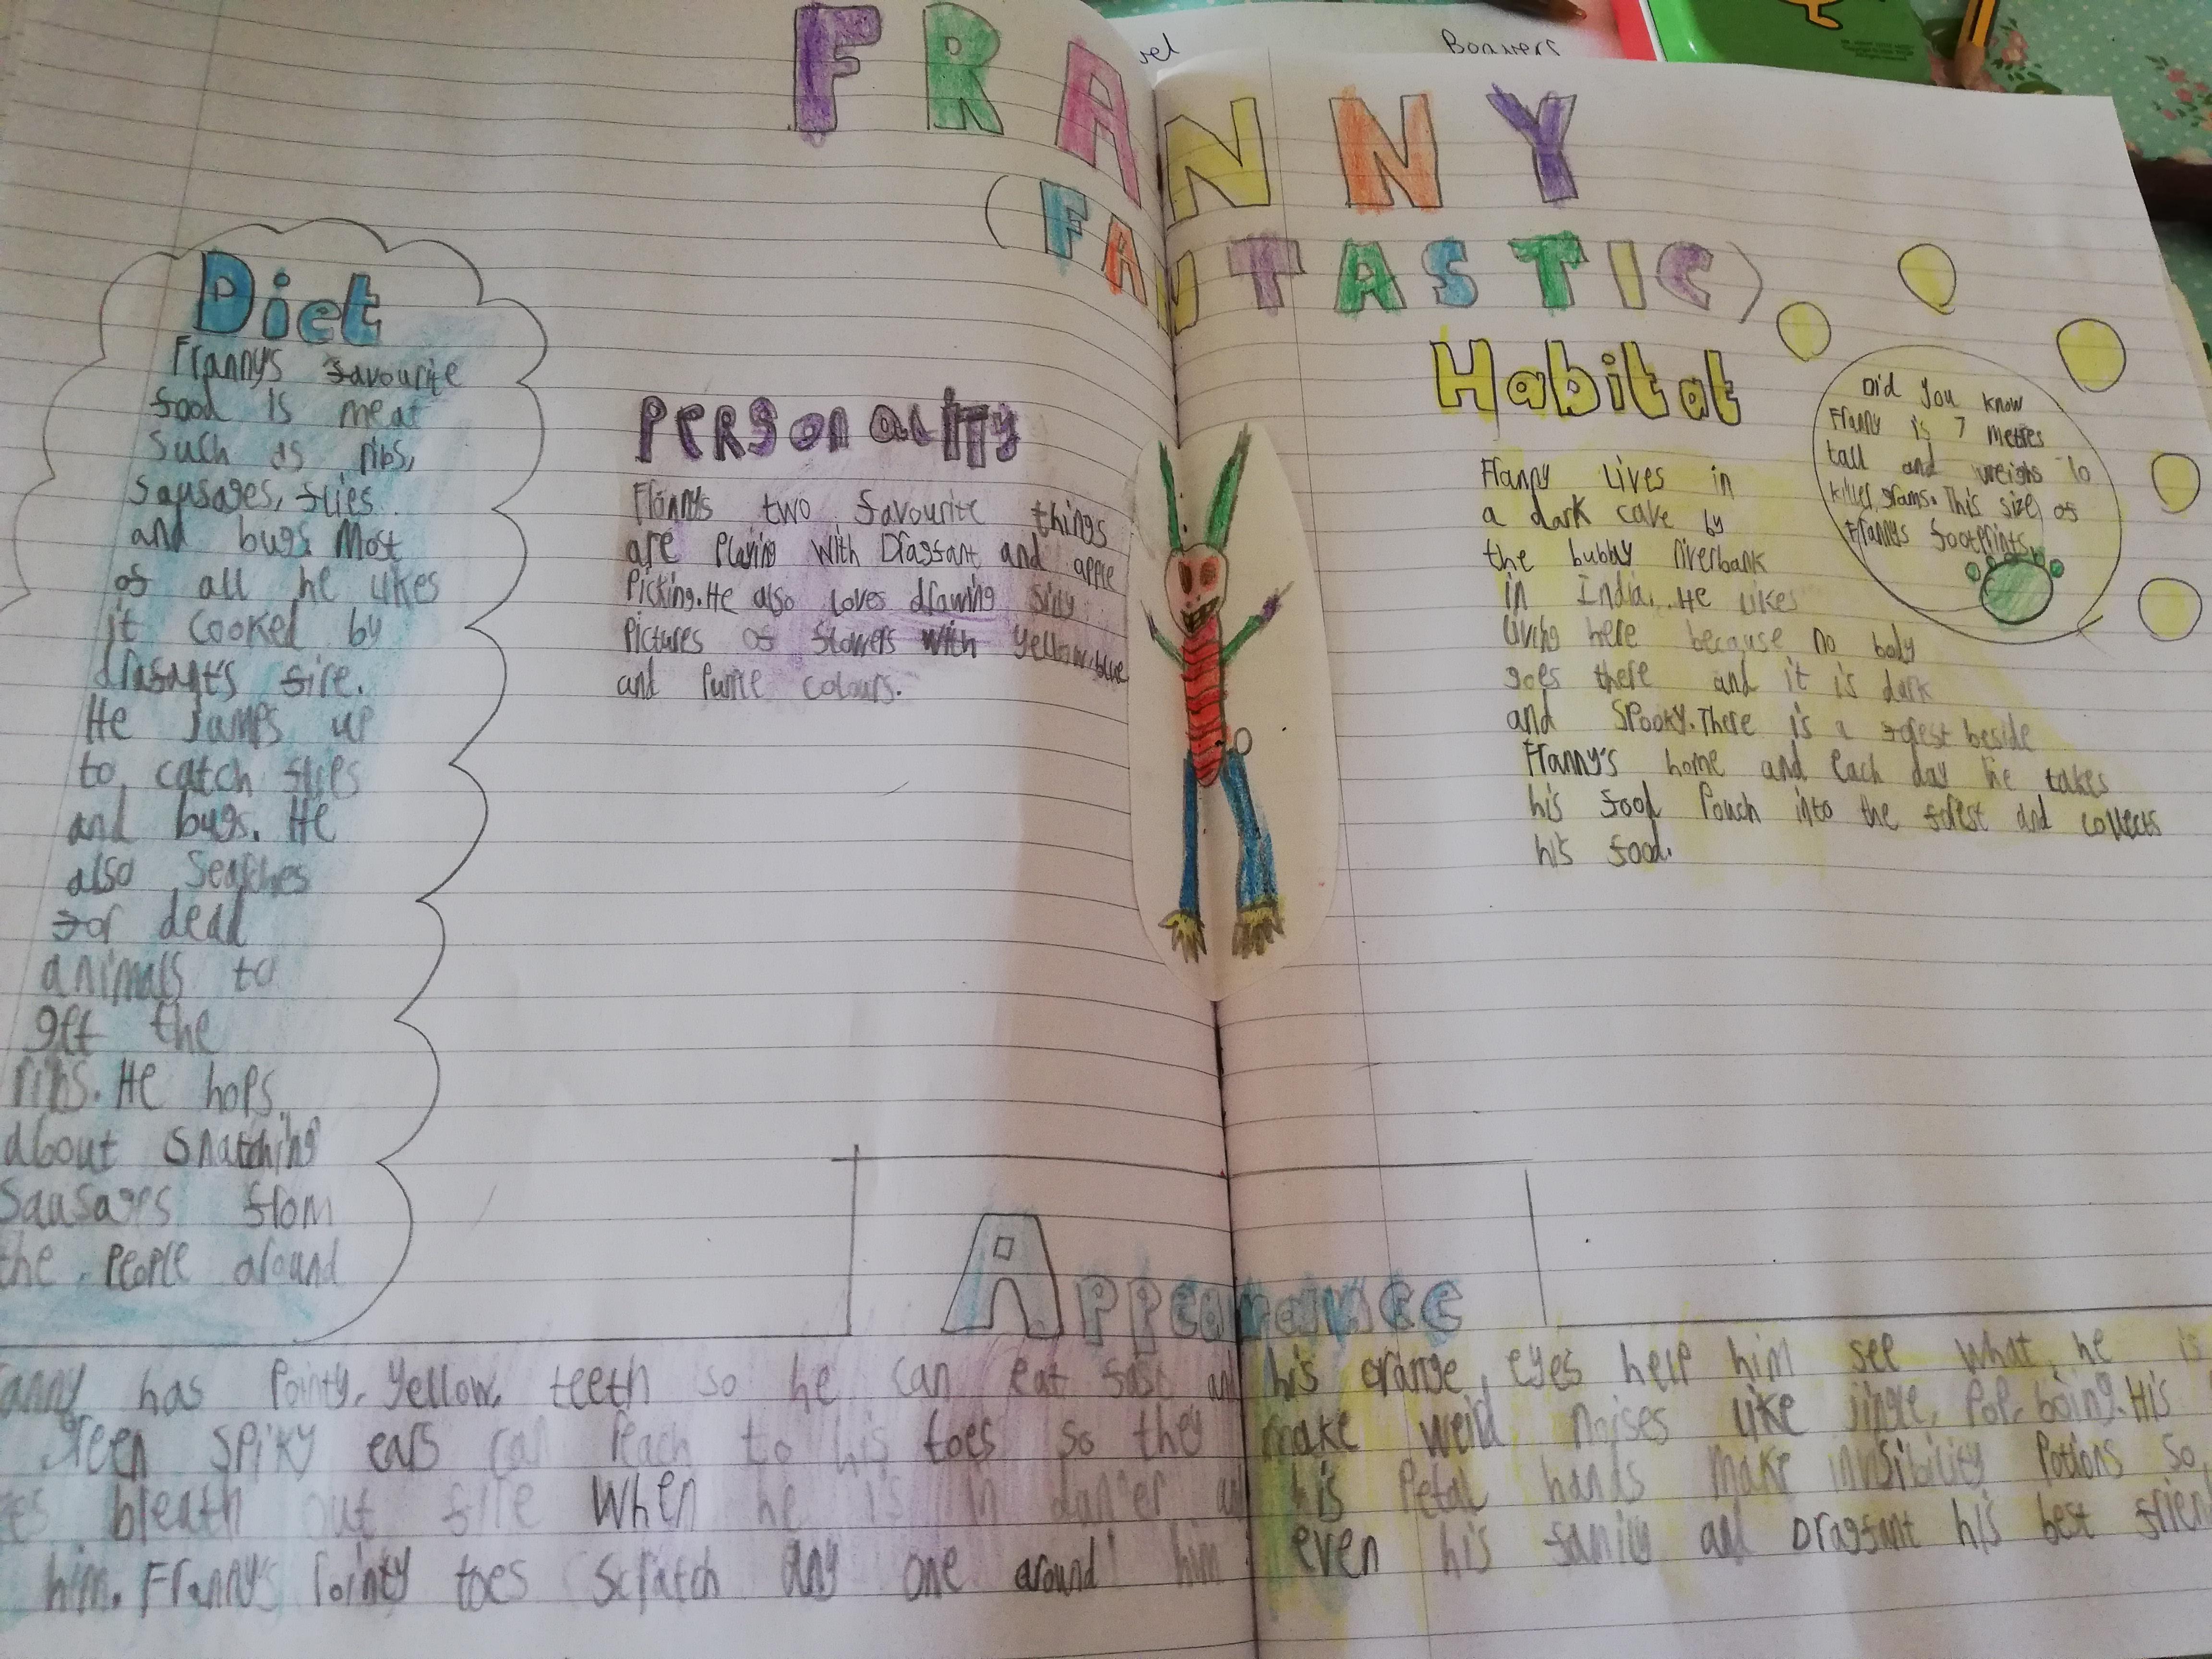 vel
Bonvers
FRANNY
(FANTASTIC)
Diet
Frannys favourite
food is meat
such as ribs,
sausages, flies
and bugs. Most
of all he likes
it cooked by
fire.
He Jumps up
to catch flies
and bugs. He
also searches
for dead
animals to
get the
ribs. He hops
about snatching
sausages from
the people around
PERSONALITY
Frannys two favourite things
are Playing with Dragfant and apple
Picking. He also loves drawing silly
Pictures of flowers with Yellow, blue
and Purple colours.
Habitat
Franny Lives in
a dark cave by
the bubby riverbank
in India. He likes
living here because no body
goes there and it is dark
and SPooky. There is a forest beside
Franny's home and each day he takes
his food Pouch into the forest and collects
his food.
Did you know
Franny is 7 metres
tall and weighs 10
killer grams. This size of
Frannys footprints
Appearance
anny has Pointy, Yellow, teeth so he can eat fast and his orange, eyes help him see what he is
green SPiKY ears can reach to his toes so they make weird noises like jingle, Pop, boing. His
breath out fire When he is in danger and his Petal hands make invisibility Potions so,
him. Franny's Pointy toes Scratch any one around him even his family and Dragfant his best frien